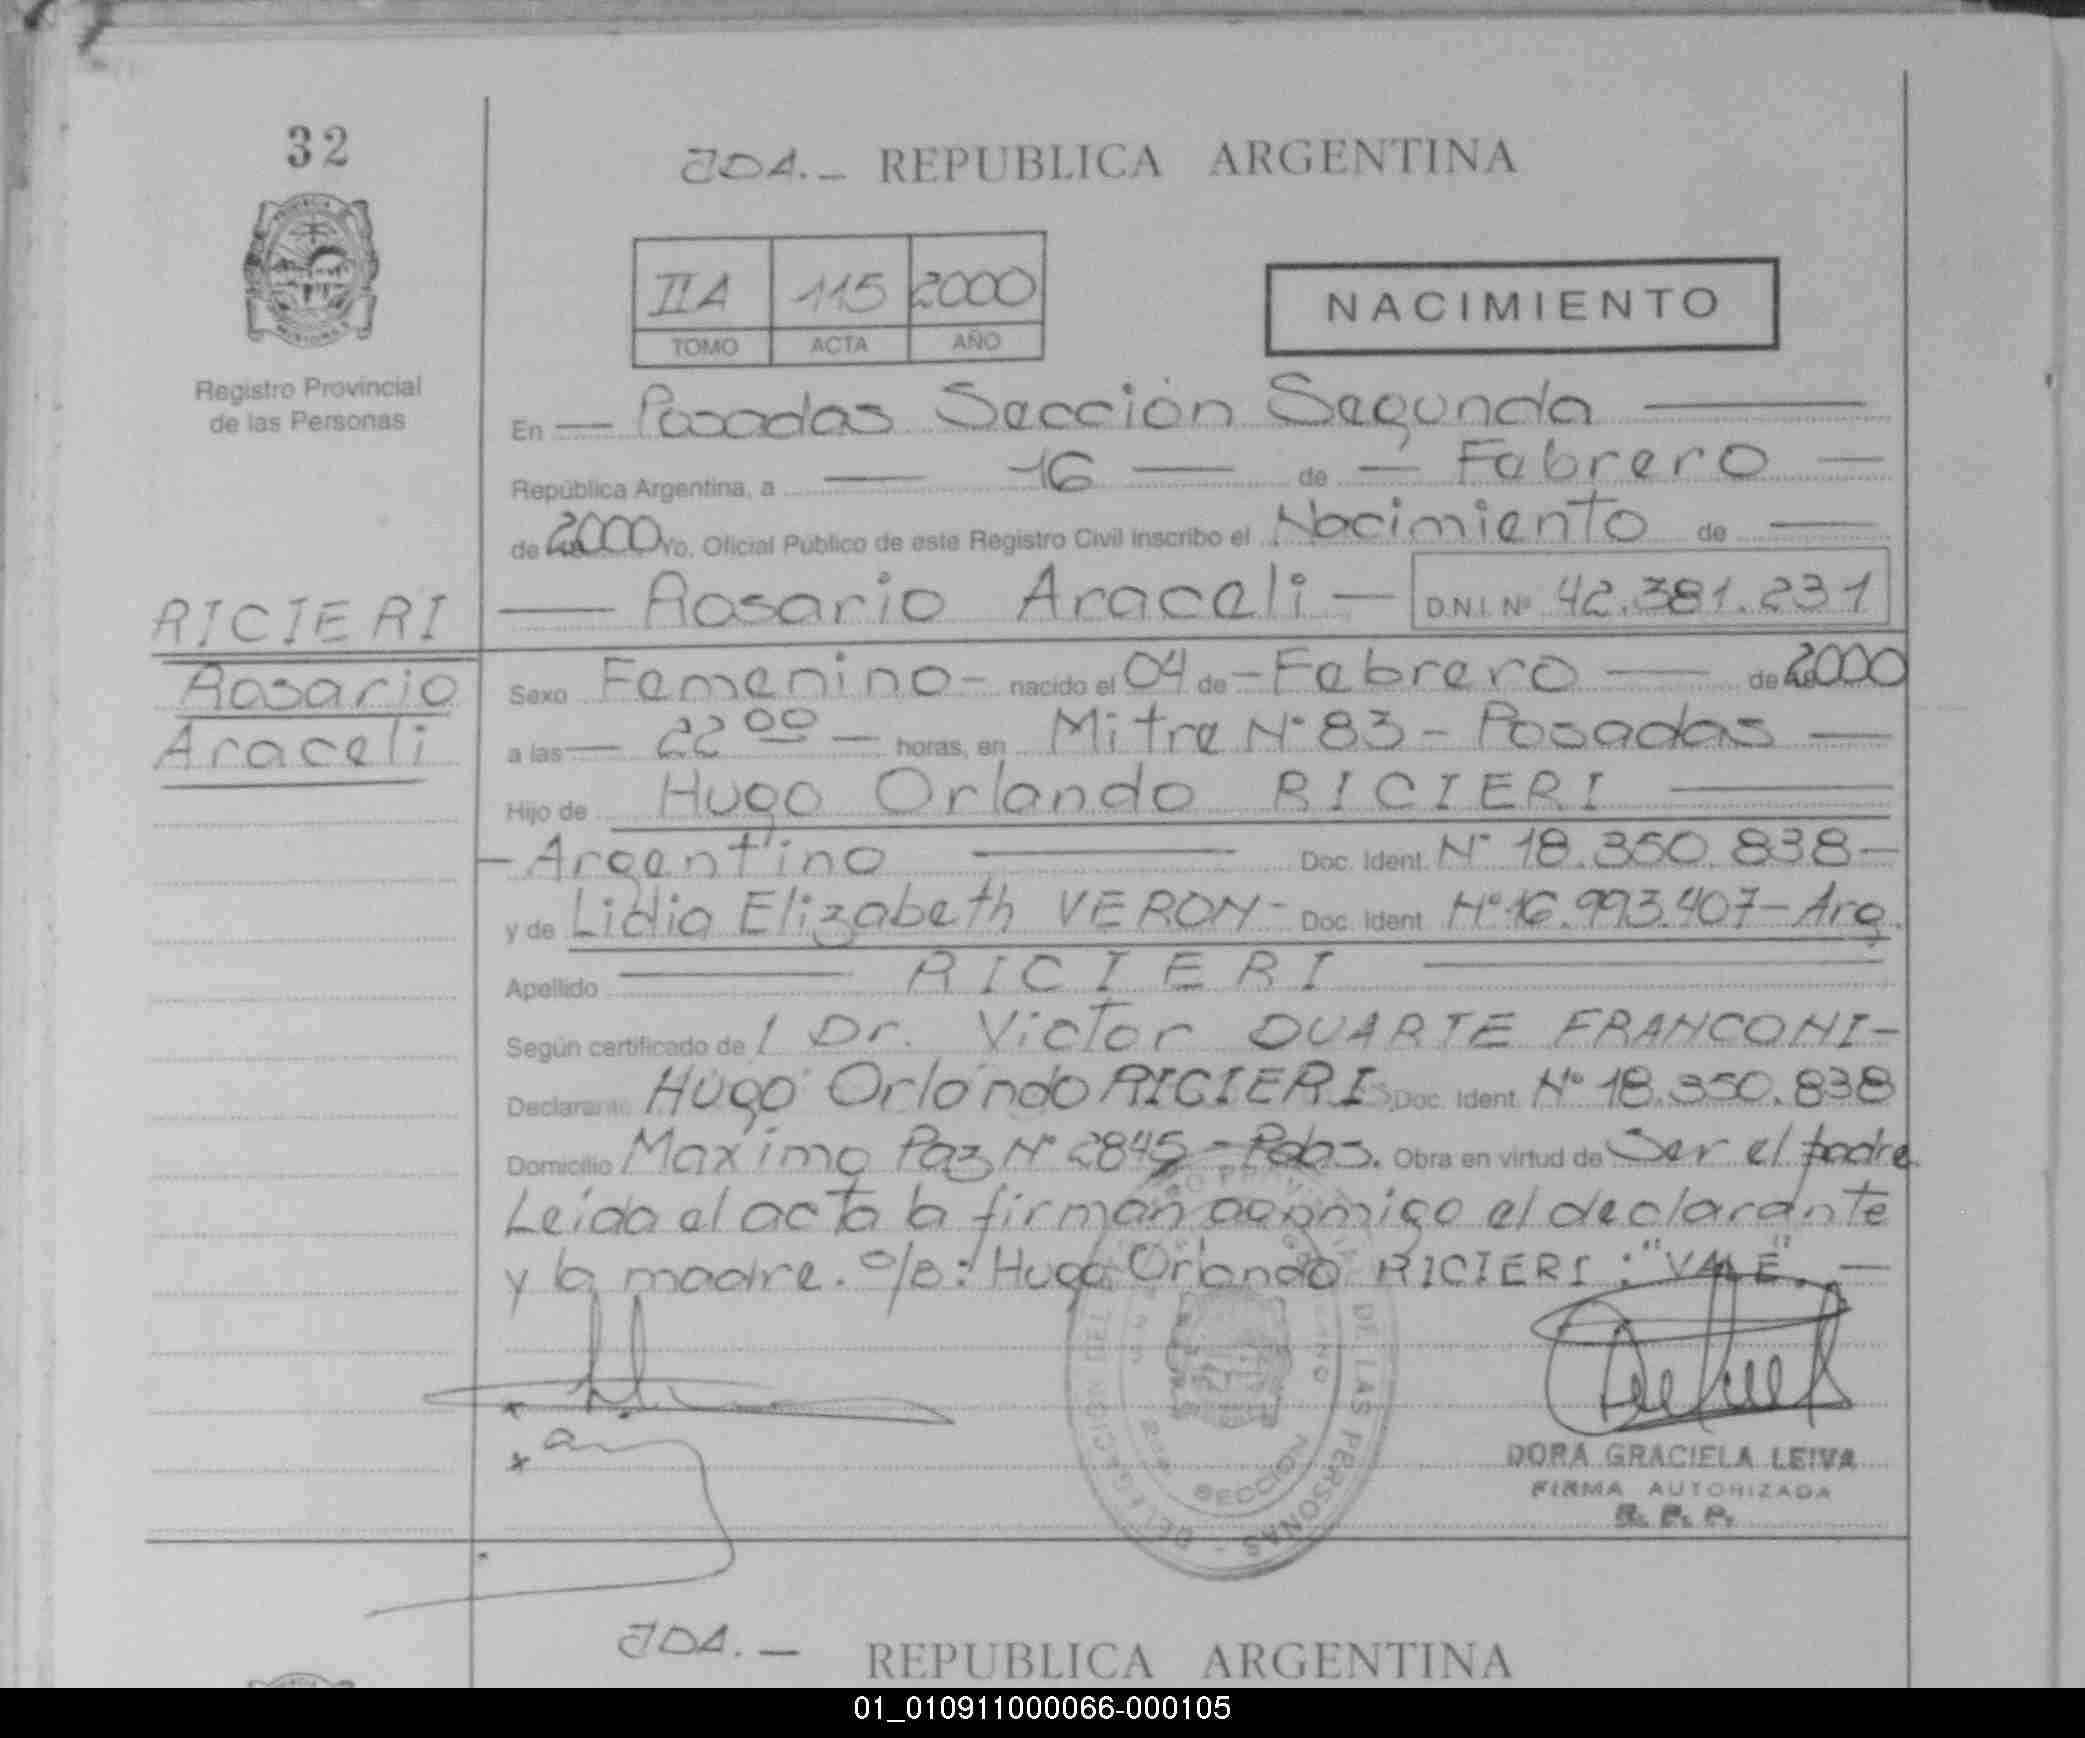 32
JDA.- REPUBLICA ARGENTINA
IIA 115 2000
TOMO ACTA AÑO
NACIMIENTO
Registro Provincial
de las Personas
En — Posadas Sección Segunda —
República Argentina, a — 16 — de — Febrero —
de 2000 Yo, Oficial Público de este Registro Civil inscribo el Nacimiento de —
— Rosario Araceli — D.N.I. Nº 42.381.231
RICIERI
Rosario
Araceli
Sexo Femenino - nacido el 04 de - Febrero — de 2000
a las — 22 00 — horas, en Mitre Nº 83 - Posadas —
Hijo de Hugo Orlando RICIERI —
- Argentino — Doc. Ident. Nº 18.350.838 -
y de Lidia Elizabeth VERON - Doc. Ident. Nº 16.993.407 - Arg.
Apellido — RICIERI —
Según certificado de l Dr. Victor DUARTE FRANCONI -
Declarante Hugo Orlando RICIERI Doc. Ident. Nº 18.350.838
Domicilio Maximo Paz Nº 2845 - Pdas. Obra en virtud de Ser el padre
Leída el acta la firman conmigo el declarante
y la madre. S/B: Hugo Orlando RICIERI : "VALE". —
DE LAS PERSONAS
SECCION
DORA GRACIELA LEIVA
FIRMA AUTORIZADA
R. P. P.
JDA. — REPUBLICA ARGENTINA
01_010911000066-000105